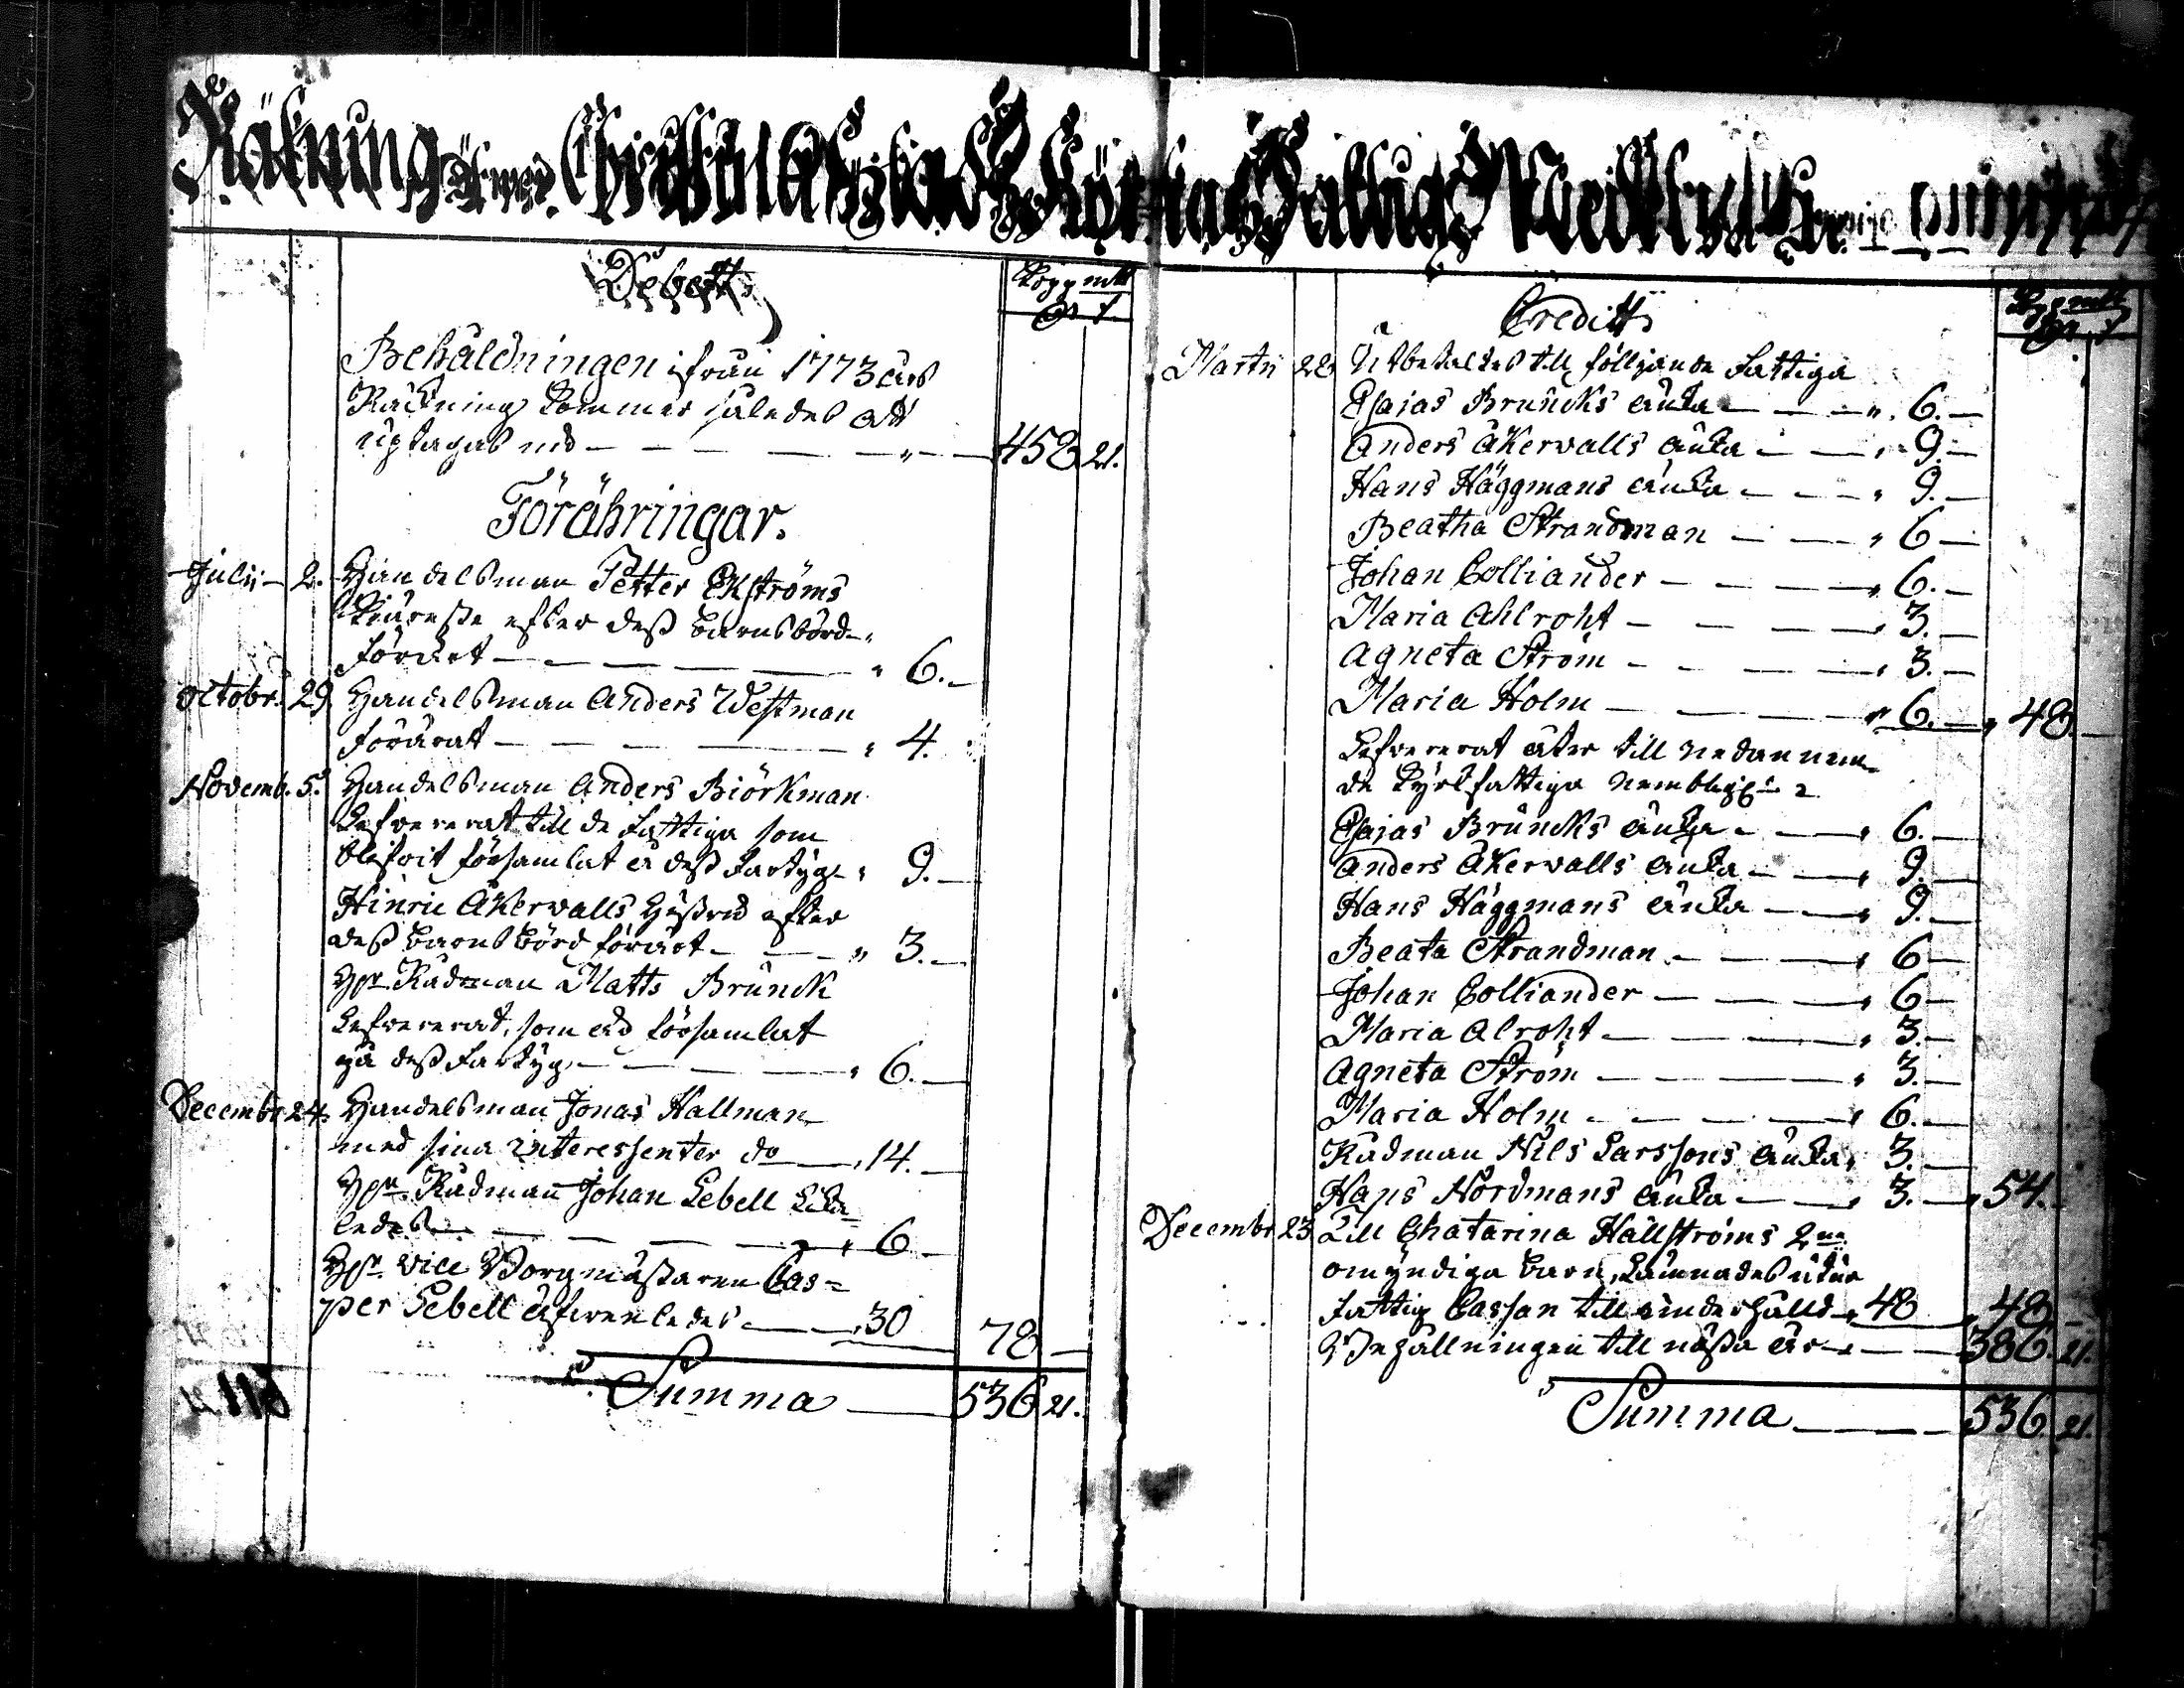 Räkning öfwer Christinæ Stads Kyrkias Fattigas Medel för
Debett
Kopp mtt
Behåldningen ifrån 1773 års
Räkning kommer således att
uptagas med — — — — " — 458 21.
Förähringar.
Julii — 2. Handelsman Petter Ekströms
Kiäreste efter dess barnsbörd
förärt — — — — " 6. —
Octobr. 29. Handelsman Anders Westman
förärat — — — — " 4.
Novemb. 5. Handelsman Anders Biörkman
Lefvererat till de Fattiga som
blifvit församlat å dess Fartyg " 9. —
Hinric Åkerwalls Hustru efter
dess barnsbörd förärt — — " 3. —
Hr. Rådman Matts Brunck
Lefvererat, som är församlat
på dess Fartyg, — — — " 6. —
Decembr 24. Handelsman Jonas Hallman
med sina interessenter do — " 14. —
Hr. Rådman Johan Lebell
ledes — — — — " 6 —
Hr. Vice Borgmästaren Cas=
per Lebell äfwenledes — " 30 78 —
Summa — 536 21.
Creditt
Martii 22 Utbetaltes till följande Fattiga
Esaias Bruncks Änka — — " 6. —
Anders Åkerwalls änka — — " 9. —
Hans Häggmans änka — — " 9. —
Beatha Strandman — — " 6 —
Johan Colliander — — — " 6. —
Maria Ahlroht — — — " 3. —
Agneta Ström — — — " 3. —
Maria Holm — — — " 6. — " 48 —
Lefvererat åter till nedannem=
de Kyrkfattiga nembligen
Esaias Bruncks änka — — " 6. —
Anders Åkerwalls änka — — " 9. —
Hans Häggmans änka — — " 9. —
Beata Strandman — — — " 6 —
Johan Colliander — — — " 6 —
Maria Alroht — — — " 3. —
Agneta Ström — — — " 3. —
Maria Holm — — — " 6. —
Rådman Nils Larssons änka " 3. —
Hans Nordmans änka — — " 3. — " 54. —
Decembr 23 Till Chatarina Hällströms 2ne
omyndiga barn, Lämnades utur
Fattig Cassan till underhålld " 48 " 48 —
Behållningen till nästa år — — 386. 21.
Summa — — — 536. 21.